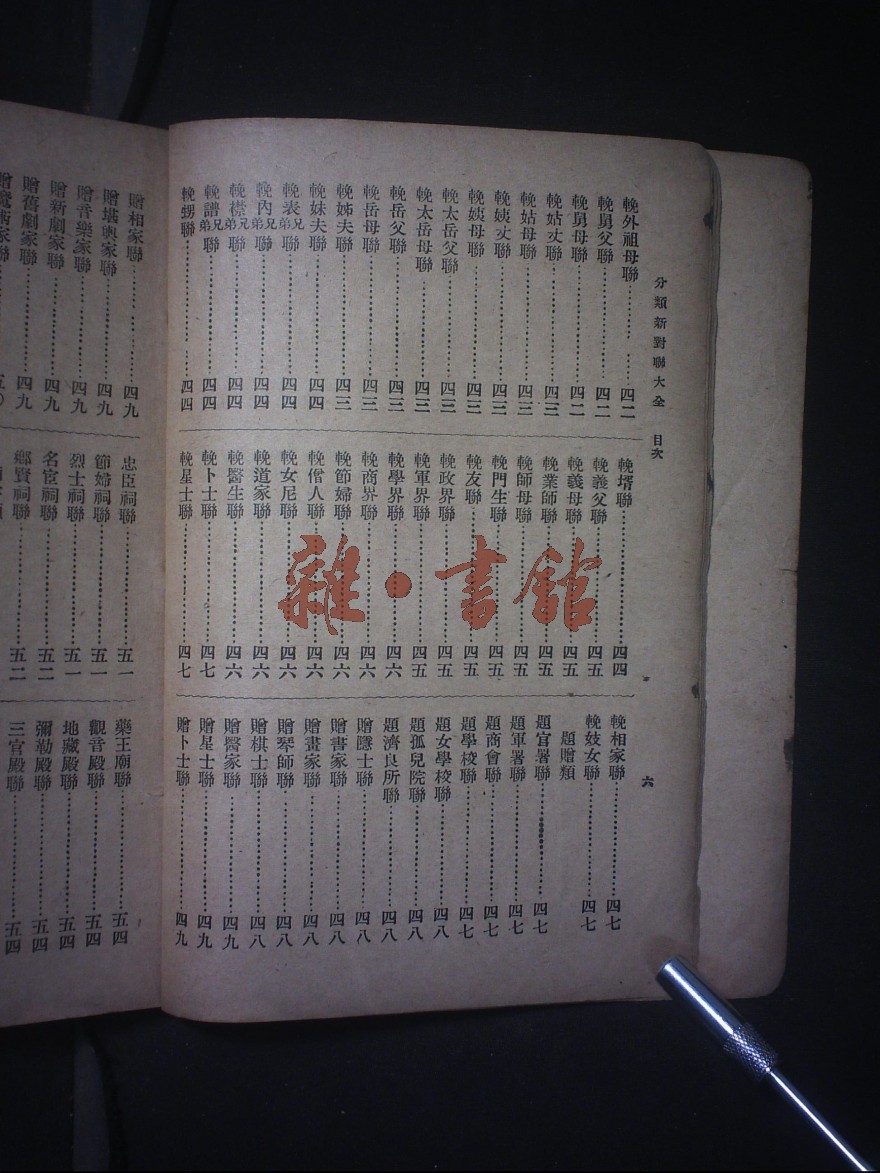 分類新對聯大全 目次
六
輓外祖母聯 四二
輓舅父聯 四二
輓舅母聯 四二
輓姑丈聯 四三
輓姑母聯 四三
輓姨丈聯 四三
輓姨母聯 四三
輓太岳父聯 四三
輓太岳母聯 四三
輓岳父聯 四三
輓岳母聯 四三
輓姊夫聯 四三
輓妹夫聯 四四
輓表兄弟聯 四四
輓內兄弟聯 四四
輓襟兄弟聯 四四
輓譜兄弟聯 四四
輓甥聯 四四
輓壻聯 四四
輓義父聯 四五
輓義母聯 四五
輓業師聯 四五
輓師母聯 四五
輓門生聯 四五
輓友聯 四五
輓政界聯 四五
輓軍界聯 四五
輓學界聯 四六
輓商界聯 四六
輓節婦聯 四六
輓僧人聯 四六
輓女尼聯 四六
輓道家聯 四六
輓醫生聯 四六
輓卜士聯 四七
輓星士聯 四七
輓相家聯 四七
輓妓女聯 四七
題贈類
題官署聯 四七
題軍署聯 四七
題商會聯 四七
題學校聯 四七
題女學校聯 四八
題孤兒院聯 四八
題濟良所聯 四八
贈隱士聯 四八
贈書家聯 四八
贈畫家聯 四八
贈琴師聯 四八
贈棋士聯 四八
贈醫家聯 四九
贈星士聯 四九
贈卜士聯 四九
贈相家聯 四九
贈堪輿家聯 四九
贈音樂家聯 四九
贈新劇家聯 四九
贈舊劇家聯 四九
贈魔術家聯 五〇
忠臣祠聯 五一
節婦祠聯 五一
烈士祠聯 五一
名宦祠聯 五二
鄉賢祠聯 五二
藥王廟聯 五四
觀音殿聯 五四
地藏殿聯 五四
彌勒殿聯 五四
三官殿聯 五四
雜·書館